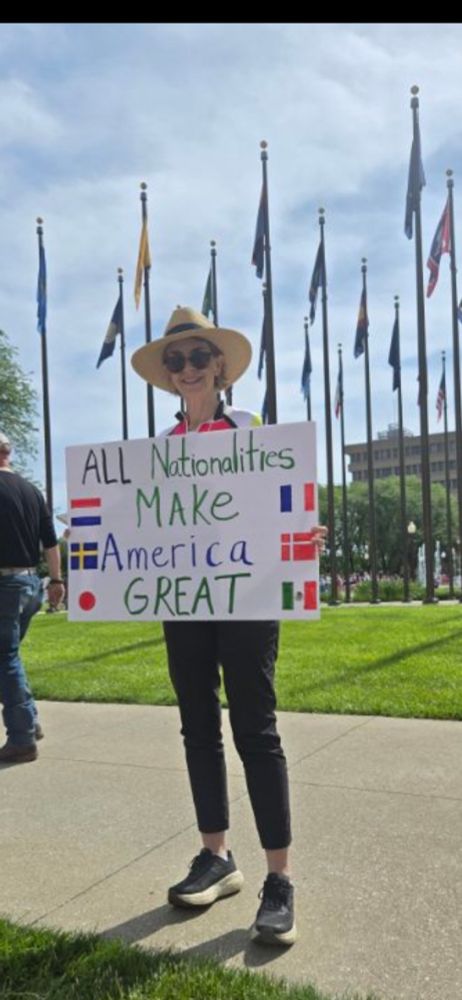 ALL Nationalities
MAKe
America
GREAT